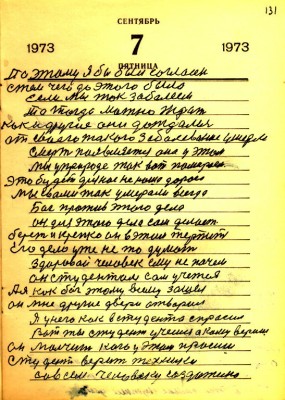 131
СЕНТЯБРЬ
1973 7 1973
ПЯТНИЦА
Поэтому я бы был согласен
с тем чего до этого было
если мы так заболеем
то тогда можно ждать
как и другие они дождались
от своего такого заболевание умерли
Смерть появляется она у этого
мы у природе так вот помираем
Это будет для нас не ново дорого
мы сами так умерали всегда
Бог против этого дела
он для этого дела сам делает
берет и крепко он в этом терпит
Его дело уже не то думать
Здоровой человек ему не
он студентом сам учется
А я как бог этому всему зашел
он мне другие двери отворил
Я у него как в студента спросил
Вот ты студент учишся а кому вериш
он молчит кого у этом просиш
Студент верит технике
совсем человеку